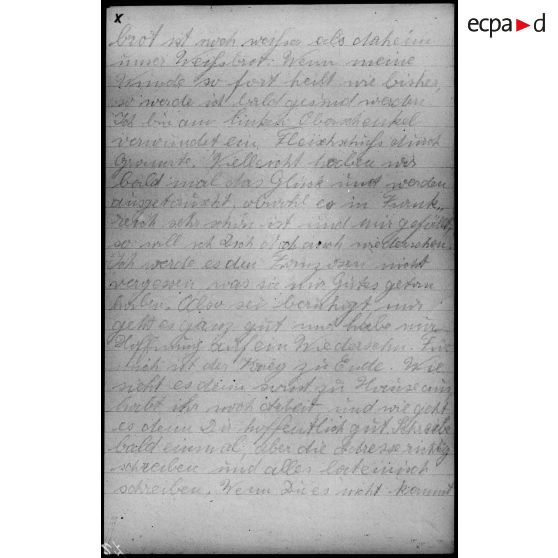 X
ecpad
brot ist noch weißer als daheim
unser Weißbrot. Wenn meine
Wunde so fort heilt wie bisher,
so werde ich bald gesund werden
Ich bin am linken Oberschenkel
verwundet ein Fleischschuß durch
Granate. Vielleicht haben wir
bald mal das Glück und werden
ausgetauscht, obwohl es in Frank-
reich sehr schön ist und mir gefällt,
so will ich Dich doch auch wiedersehen.
Ich werde es den Franzosen nicht
vergessen was sie mir Gutes getan
haben. Also sei beruhigt mir
geht es ganz gut und habe nur
Hoffnung auf ein Wiedersehn. Für
mich ist der Krieg zu Ende. Wie
sieht es denn sonst zu Hause aus,
habt ihr noch Arbeit, und wie geht
es denn Dir hoffentlich gut. Schreibe
bald einmal, aber die Adresse richtig
schreiben und alles lateinisch
schreiben. Wenn Du es nicht kannst